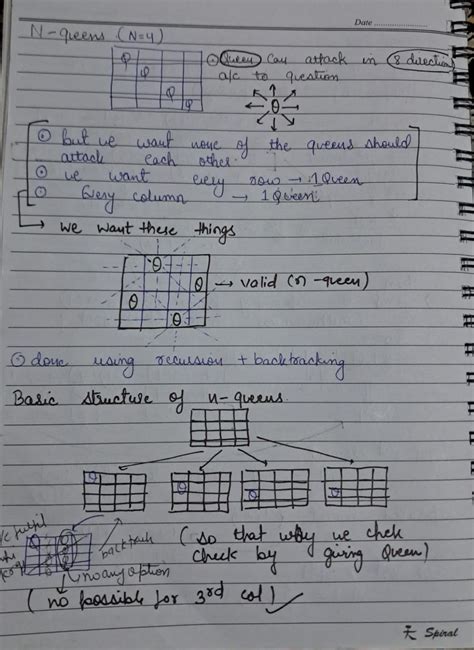 Date
N-queens (N=4)
Queen Can attack in 8 direction
a/c to question
Q
Q
Q
Q
but we want none of the queens should
attack each other.
we want every row → 1 Queen
Every column → 1 Queen
we want these things
→ valid (n-queen)
done using recursion + backtracking
Basic structure of n-queens.
(so that why we chek
check by giving Queen)
backtrack
no any option
(no possible for 3rd col) ✓
Spiral